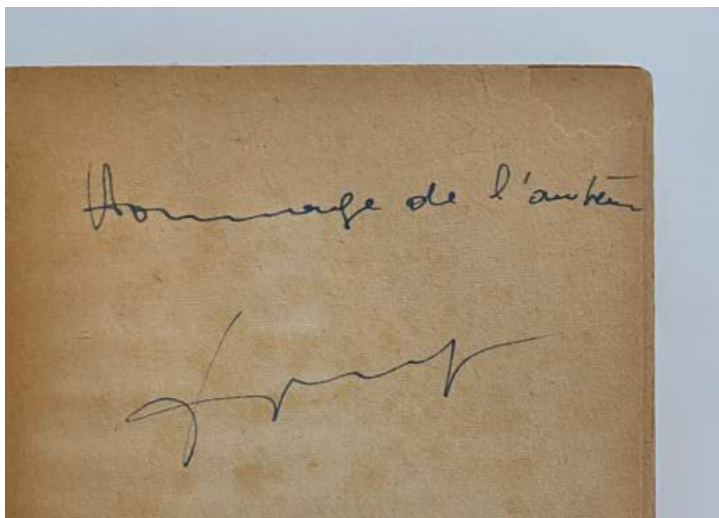 Hommage de l'auteur